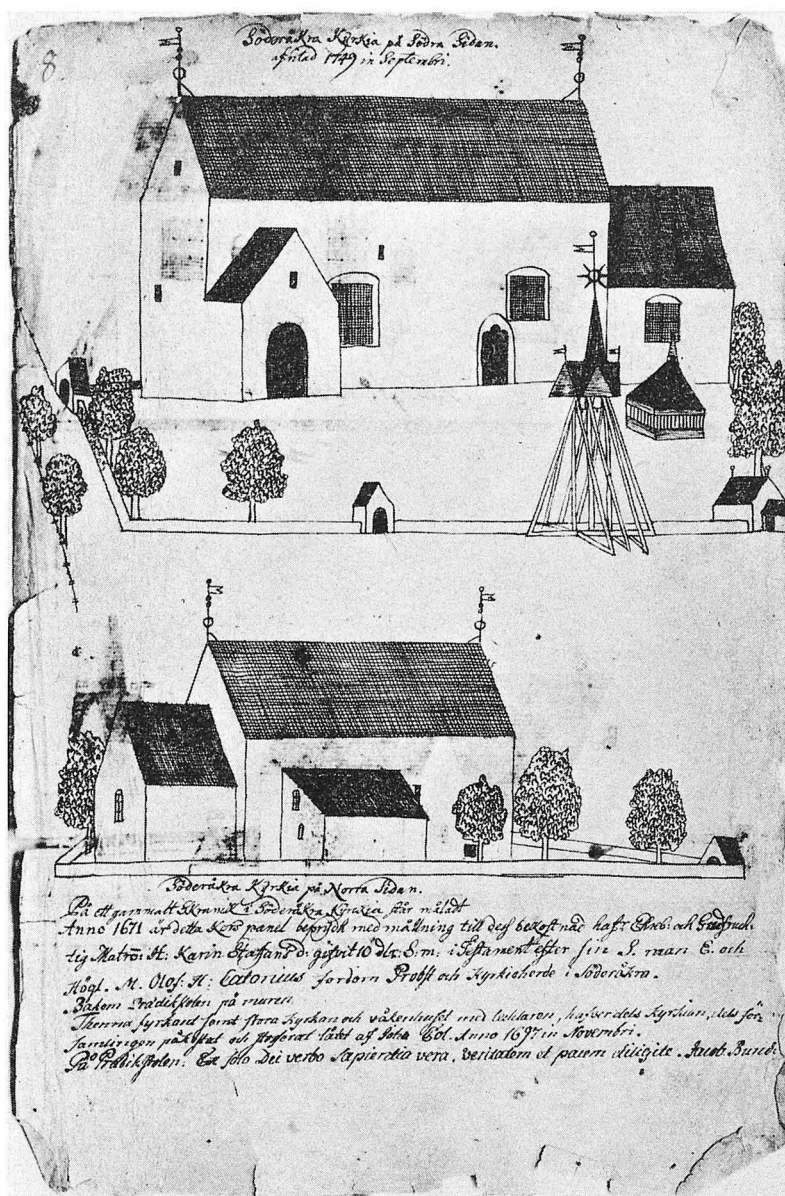 8
Söderåkra Kyrkia på Södra Sidan.
afritad 1749 in Septembri.
Söderåkra Kyrkia på Norra Sidan.
På ett gammalt Skrank i Söderåkra Kyrckia står måladt
Anno 1671 är detta Kors panel beprydt med målning till dess bekostnad haft Ehreb: och Gudfruch-
tig Matron H: Karin Staffans d: gifvit 10 dlr: S: m: i Testament efter sin S. man E. och
Högl. M. Olof: H: Catonius fordom Probst och Kyrkioherde i Söderåkra.
Bakom Prædikstolen på muren
Thenna fyrkant samt stora Kyrkan och våkenhuset med lächtaren, hafver dels Kyrkian, dels för-
samlingen påkostat och låtet af Joh: Col. Anno 1697 in Novembri.
På Prædikstolen: Ex solo Dei verbo sapientia vera, veritatem et pacem diligite. Jacob. Bund: